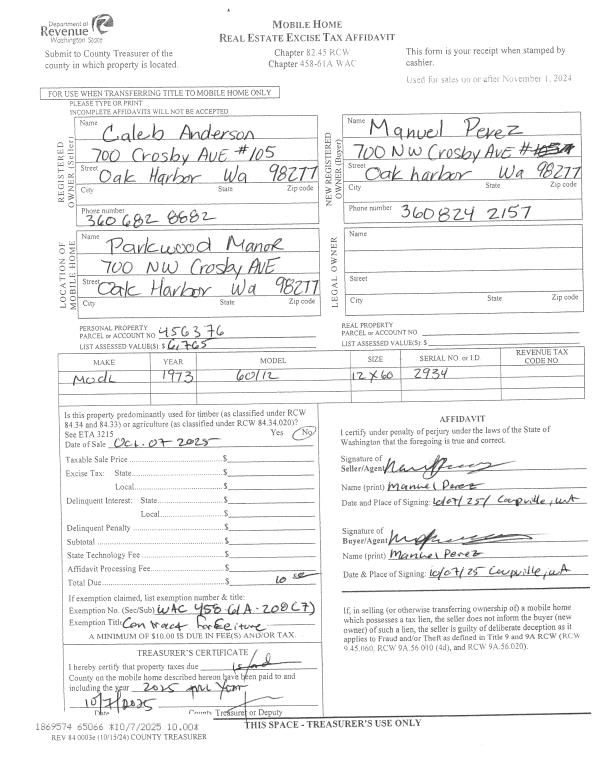 Department of
Revenue
Washington State
Submit to County Treasurer of the
county in which property is located.
MOBILE HOME
REAL ESTATE EXCISE TAX AFFIDAVIT
Chapter 82.45 RCW
Chapter 458-61A WAC
This form is your receipt when stamped by
cashier.
Used for sales on or after November 1, 2024
FOR USE WHEN TRANSFERRING TITLE TO MOBILE HOME ONLY
PLEASE TYPE OR PRINT
INCOMPLETE AFFIDAVITS WILL NOT BE ACCEPTED
REGISTERED
OWNER (Seller)
Name
Caleb Anderson
700 Crosby AVE #105
Street
Oak Harbor Wa 98277
City State Zip code
Phone number
360 682 8682
NEW REGISTERED
OWNER (Buyer)
Name
Manuel Perez
700 NW Crosby AVE #105A
Street
Oak harbor Wa 98277
City State Zip code
Phone number 360 824 2157
LOCATION OF
MOBILE HOME
Name
Parkwood Manor
700 NW Crosby AVE
Street
Oak Harbor Wa 98277
City State Zip code
LEGAL OWNER
Name
Street
City State Zip code
PERSONAL PROPERTY
PARCEL or ACCOUNT NO. 456376
LIST ASSESSED VALUE(S) $ 6,765
REAL PROPERTY
PARCEL or ACCOUNT NO.
LIST ASSESSED VALUE(S): $
MAKE YEAR MODEL SIZE SERIAL NO. or I.D. REVENUE TAX CODE NO.
MODL 1973 60/12 12 X 60 2934
Is this property predominantly used for timber (as classified under RCW
84.34 and 84.33) or agriculture (as classified under RCW 84.34.020)?
See ETA 3215 Yes No
Date of Sale Oct. 07 2025
Taxable Sale Price $
Excise Tax: State $
Local $
Delinquent Interest: State $
Local $
Delinquent Penalty $
Subtotal $
State Technology Fee $
Affidavit Processing Fee $
Total Due $ 10
If exemption claimed, list exemption number & title:
Exemption No. (Sec/Sub) WAC 458-61A-208(7)
Exemption Title Contract Forfeiture
A MINIMUM OF $10.00 IS DUE IN FEE(S) AND/OR TAX.
TREASURER'S CERTIFICATE
I hereby certify that property taxes due Island
County on the mobile home described hereon have been paid to and
including the year 2025
10/7/2025
Date County Treasurer or Deputy
AFFIDAVIT
I certify under penalty of perjury under the laws of the State of
Washington that the foregoing is true and correct.
Signature of
Seller/Agent
Name (print) Manuel Perez
Date and Place of Signing: 10/07/25/ Coupville, WA
Signature of
Buyer/Agent
Name (print) Manuel Perez
Date & Place of Signing: 10/07/25 Coupville, WA
If, in selling (or otherwise transferring ownership of) a mobile home
which possesses a tax lien, the seller does not inform the buyer (new
owner) of such a lien, the seller is guilty of deliberate deception as it
applies to Fraud and/or Theft as defined in Title 9 and 9A RCW (RCW
9.45.060, RCW 9A.56.010 (4d), and RCW 9A.56.020).
1869574 65066 *10/7/2025 10.00*
THIS SPACE - TREASURER'S USE ONLY
REV 84 0003e (10/15/24) COUNTY TREASURER